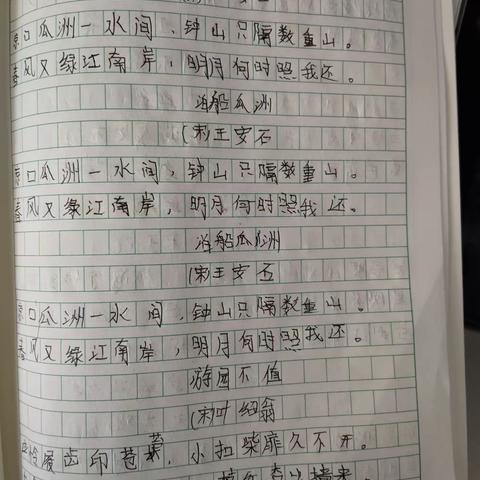 京口瓜洲一水间，钟山只隔数重山。
春风又绿江南岸，明月何时照我还。
泊船瓜洲
(宋)王安石
京口瓜洲一水间，钟山只隔数重山。
春风又绿江南岸，明月何时照我还。
泊船瓜洲
(宋)王安石
京口瓜洲一水间，钟山只隔数重山。
春风又绿江南岸，明月何时照我还。
游园不值
(宋)叶绍翁
应怜屐齿印苍苔，小扣柴扉久不开。